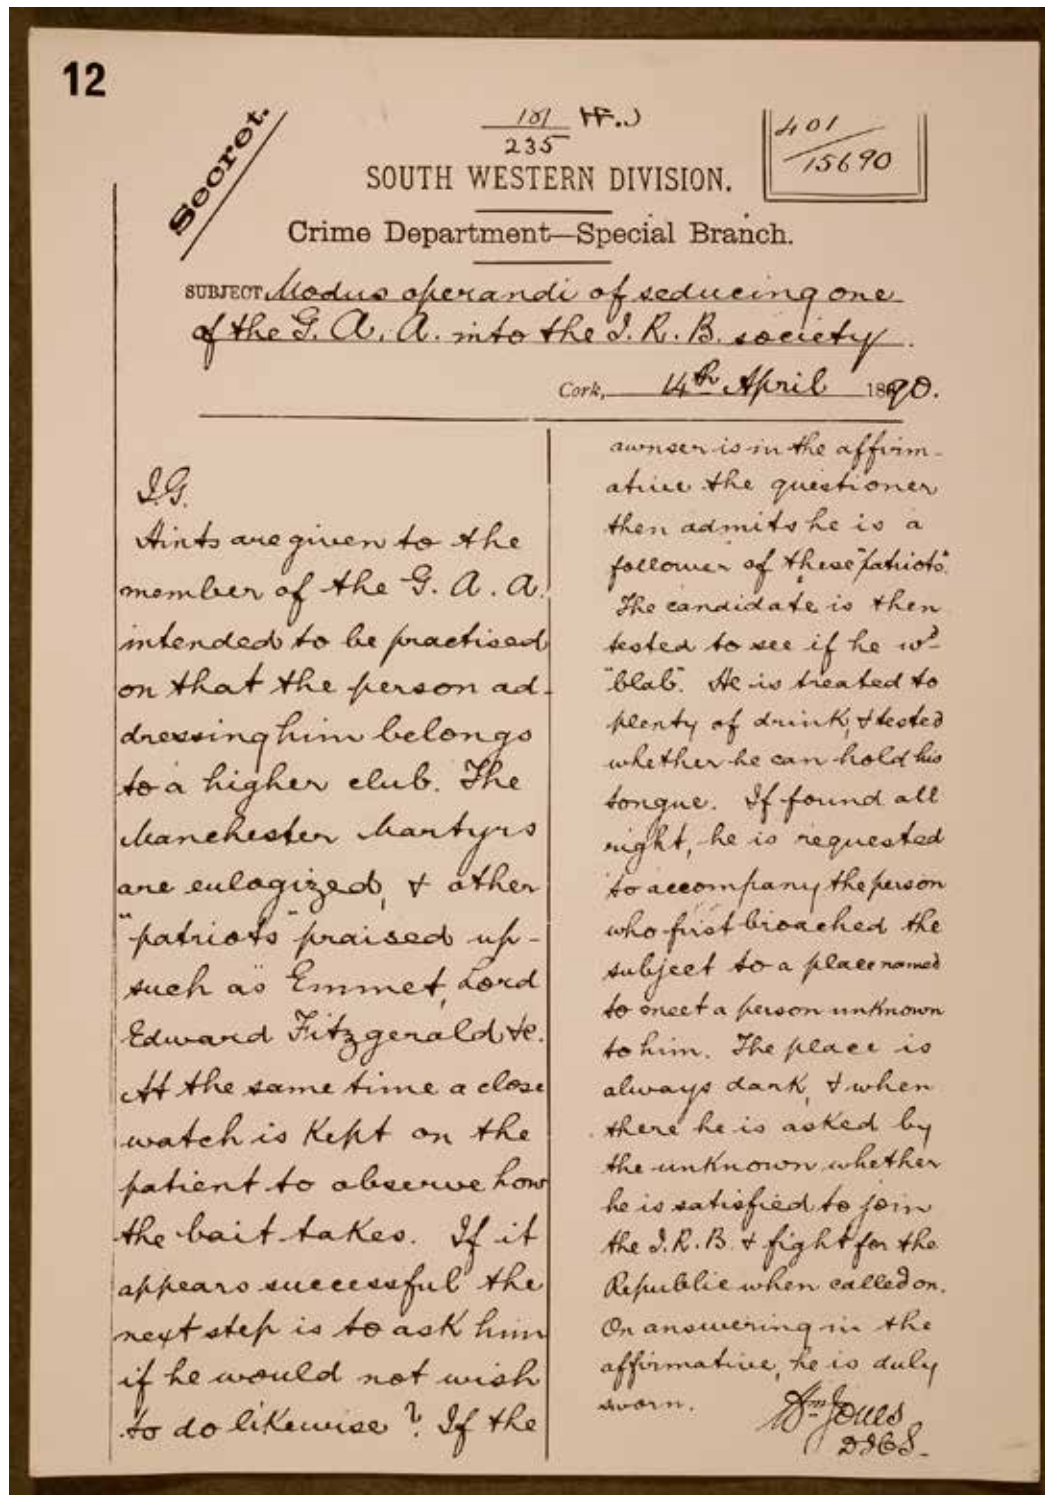 12
Secret.
181
235
401
15690
SOUTH WESTERN DIVISION.
Crime Department—Special Branch.
SUBJECT Modus operandi of seducing one
of the G. A. A. into the I. R. B. society.
Cork, 14th April 1890.
I.G.
Hints are given to the
member of the G. A. A.
intended to be practised
on that the person ad-
dressing him belongs
to a higher club. The
Manchester Martyrs
are eulogized, & other
"patriots" praised up -
such as Emmet, Lord
Edward Fitzgerald &c.
At the same time a close
watch is kept on the
patient to observe how
the bait takes. If it
appears successful the
next step is to ask him
if he would not wish
to do likewise? If the
awnser is in the affirm-
ative the questioner
then admits he is a
follower of these "patriots".
The candidate is then
tested to see if he wd
"blab". He is treated to
plenty of drink, & tested
whether he can hold his
tongue. If found all
right, he is requested
to accompany the person
who first broached the
subject to a place named
to meet a person unknown
to him. The place is
always dark, & when
there he is asked by
the unknown whether
he is satisfied to join
the I.R.B. & fight for the
Republic when called on.
On answering in the
affirmative, he is duly
sworn.
Wm Jones